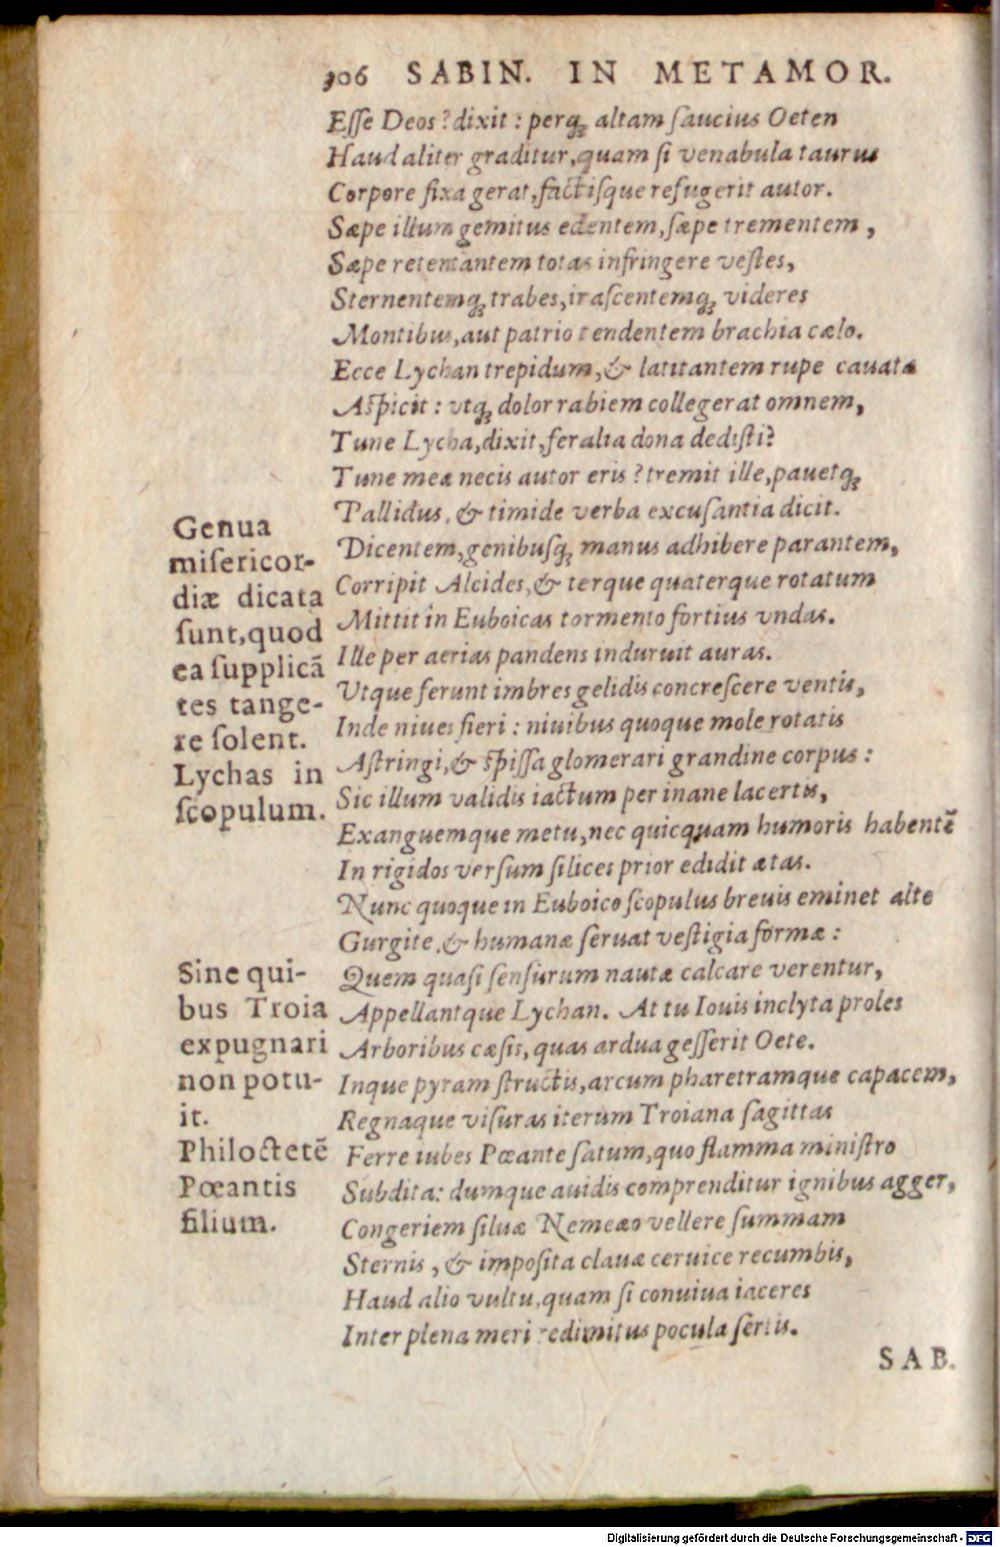 306 SABIN. IN METAMOR.
Esse Deos? dixit: perq́; altam saucius Oeten
Haud aliter graditur, quam si venabula taurus
Corpore fixa gerat, factisque refugerit autor.
Sæpe illum gemitus edentem, sæpe trementem,
Sæpe retentantem totas infringere vestes,
Sternentemq́; trabes, irascentemq́; videres
Montibus, aut patrio tendentem brachia cælo.
Ecce Lychan trepidum, & latitantem rupe cauata
Aspicit: vtq́; dolor rabiem collegerat omnem,
Tune Lycha, dixit, feralia dona dedisti?
Tune meæ necis autor eris? tremit ille, pauetq́;
Pallidus, & timide verba excusantia dicit.
Dicentem, genibusq́; manus adhibere parantem,
Corripit Alcides, & terque quaterque rotatum
Mittit in Euboicas tormento fortius vndas.
Ille per aerias pandens induruit auras.
Vtque ferunt imbres gelidis concrescere ventis,
Inde niues fieri: niuibus quoque mole rotatis
Astringi, & spissa glomerari grandine corpus:
Sic illum validis iactum per inane lacertis,
Exanguemque metu, nec quicquam humoris habentē
In rigidos versum silices prior edidit ætas.
Nunc quoque in Euboico scopulus breuis eminet alte
Gurgite, & humanæ seruat vestigia formæ:
Quem quasi sensurum nautæ calcare verentur,
Appellantque Lychan. At tu Iouis inclyta proles
Arboribus cæsis, quas ardua gesserit Oete.
Inque pyram structis, arcum pharetramque capacem,
Regnaque visuras iterum Troiana sagittas
Ferre iubes Pœante satum, quo flamma ministro
Subdita: dumque auidis comprenditur ignibus agger,
Congeriem siluæ Nemeæo vellere summam
Sternis, & imposita clauæ ceruice recumbis,
Haud alio vultu, quam si conuiua iaceres
Inter plena meri redimitus pocula sertis.
SAB.
Genua
misericor-
diæ dicata
sunt, quod
ea supplicā
tes tange-
re solent.
Lychas in
scopulum.
Sine qui-
bus Troia
expugnari
non potu-
it.
Philoctetē
Pœantis
filium.
Digitalisierung gefördert durch die Deutsche Forschungsgemeinschaft - DFG